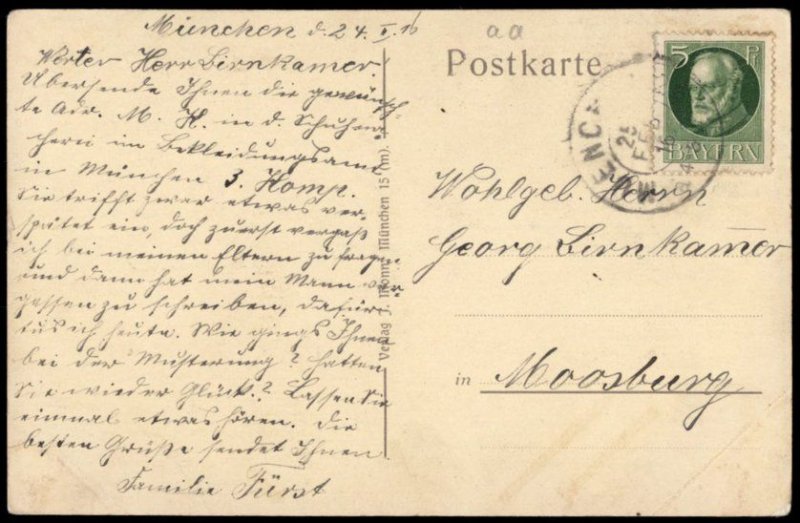 München d. 24. II. 16
Werter Herr Birnkamer.
Übersende Ihnen die gewünsch-
te Adr. M. H. in d. Schuhma-
cherei im Bekleidungsamt
in München 3. Komp.
Sie trifft zwar etwas ver-
spätet ein, doch zuerst vergaß
ich bei meinen Eltern zu fragen
und dann hat mein Mann ver-
gessen zu schreiben, dafür
tus ich heute. Wie gings Ihnen
bei der Musterung? hatten
Sie wieder Glück? Lassen Sie
einmal etwas hören. Die
besten Grüße sendet Ihnen
Familie Fürst
Verlag J. München 15 (m).
aa
Postkarte
5 P
BAYERN
Wohlgeb. Herrn
Georg Birnkamer
in Moosburg